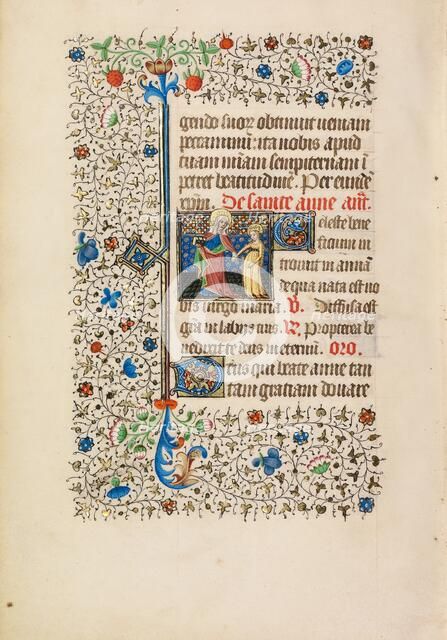 gendo suor obtinuit ueniam
peccaminū: ita nobis apud
tuam m̄iam sempiternam ī
petret beatitudinē. Per eundē
xp̄m. De sainte anne añ.
Celeste bene
ficium in
troiuit in annā
de qua nata est no
bis uirgo maria. V. Diffusa est
gr̄a in labijs tuis. R. Propterea be
nedixit te deus in eternū. oro.
Deus qui beate anne tan
tam gratiam donare